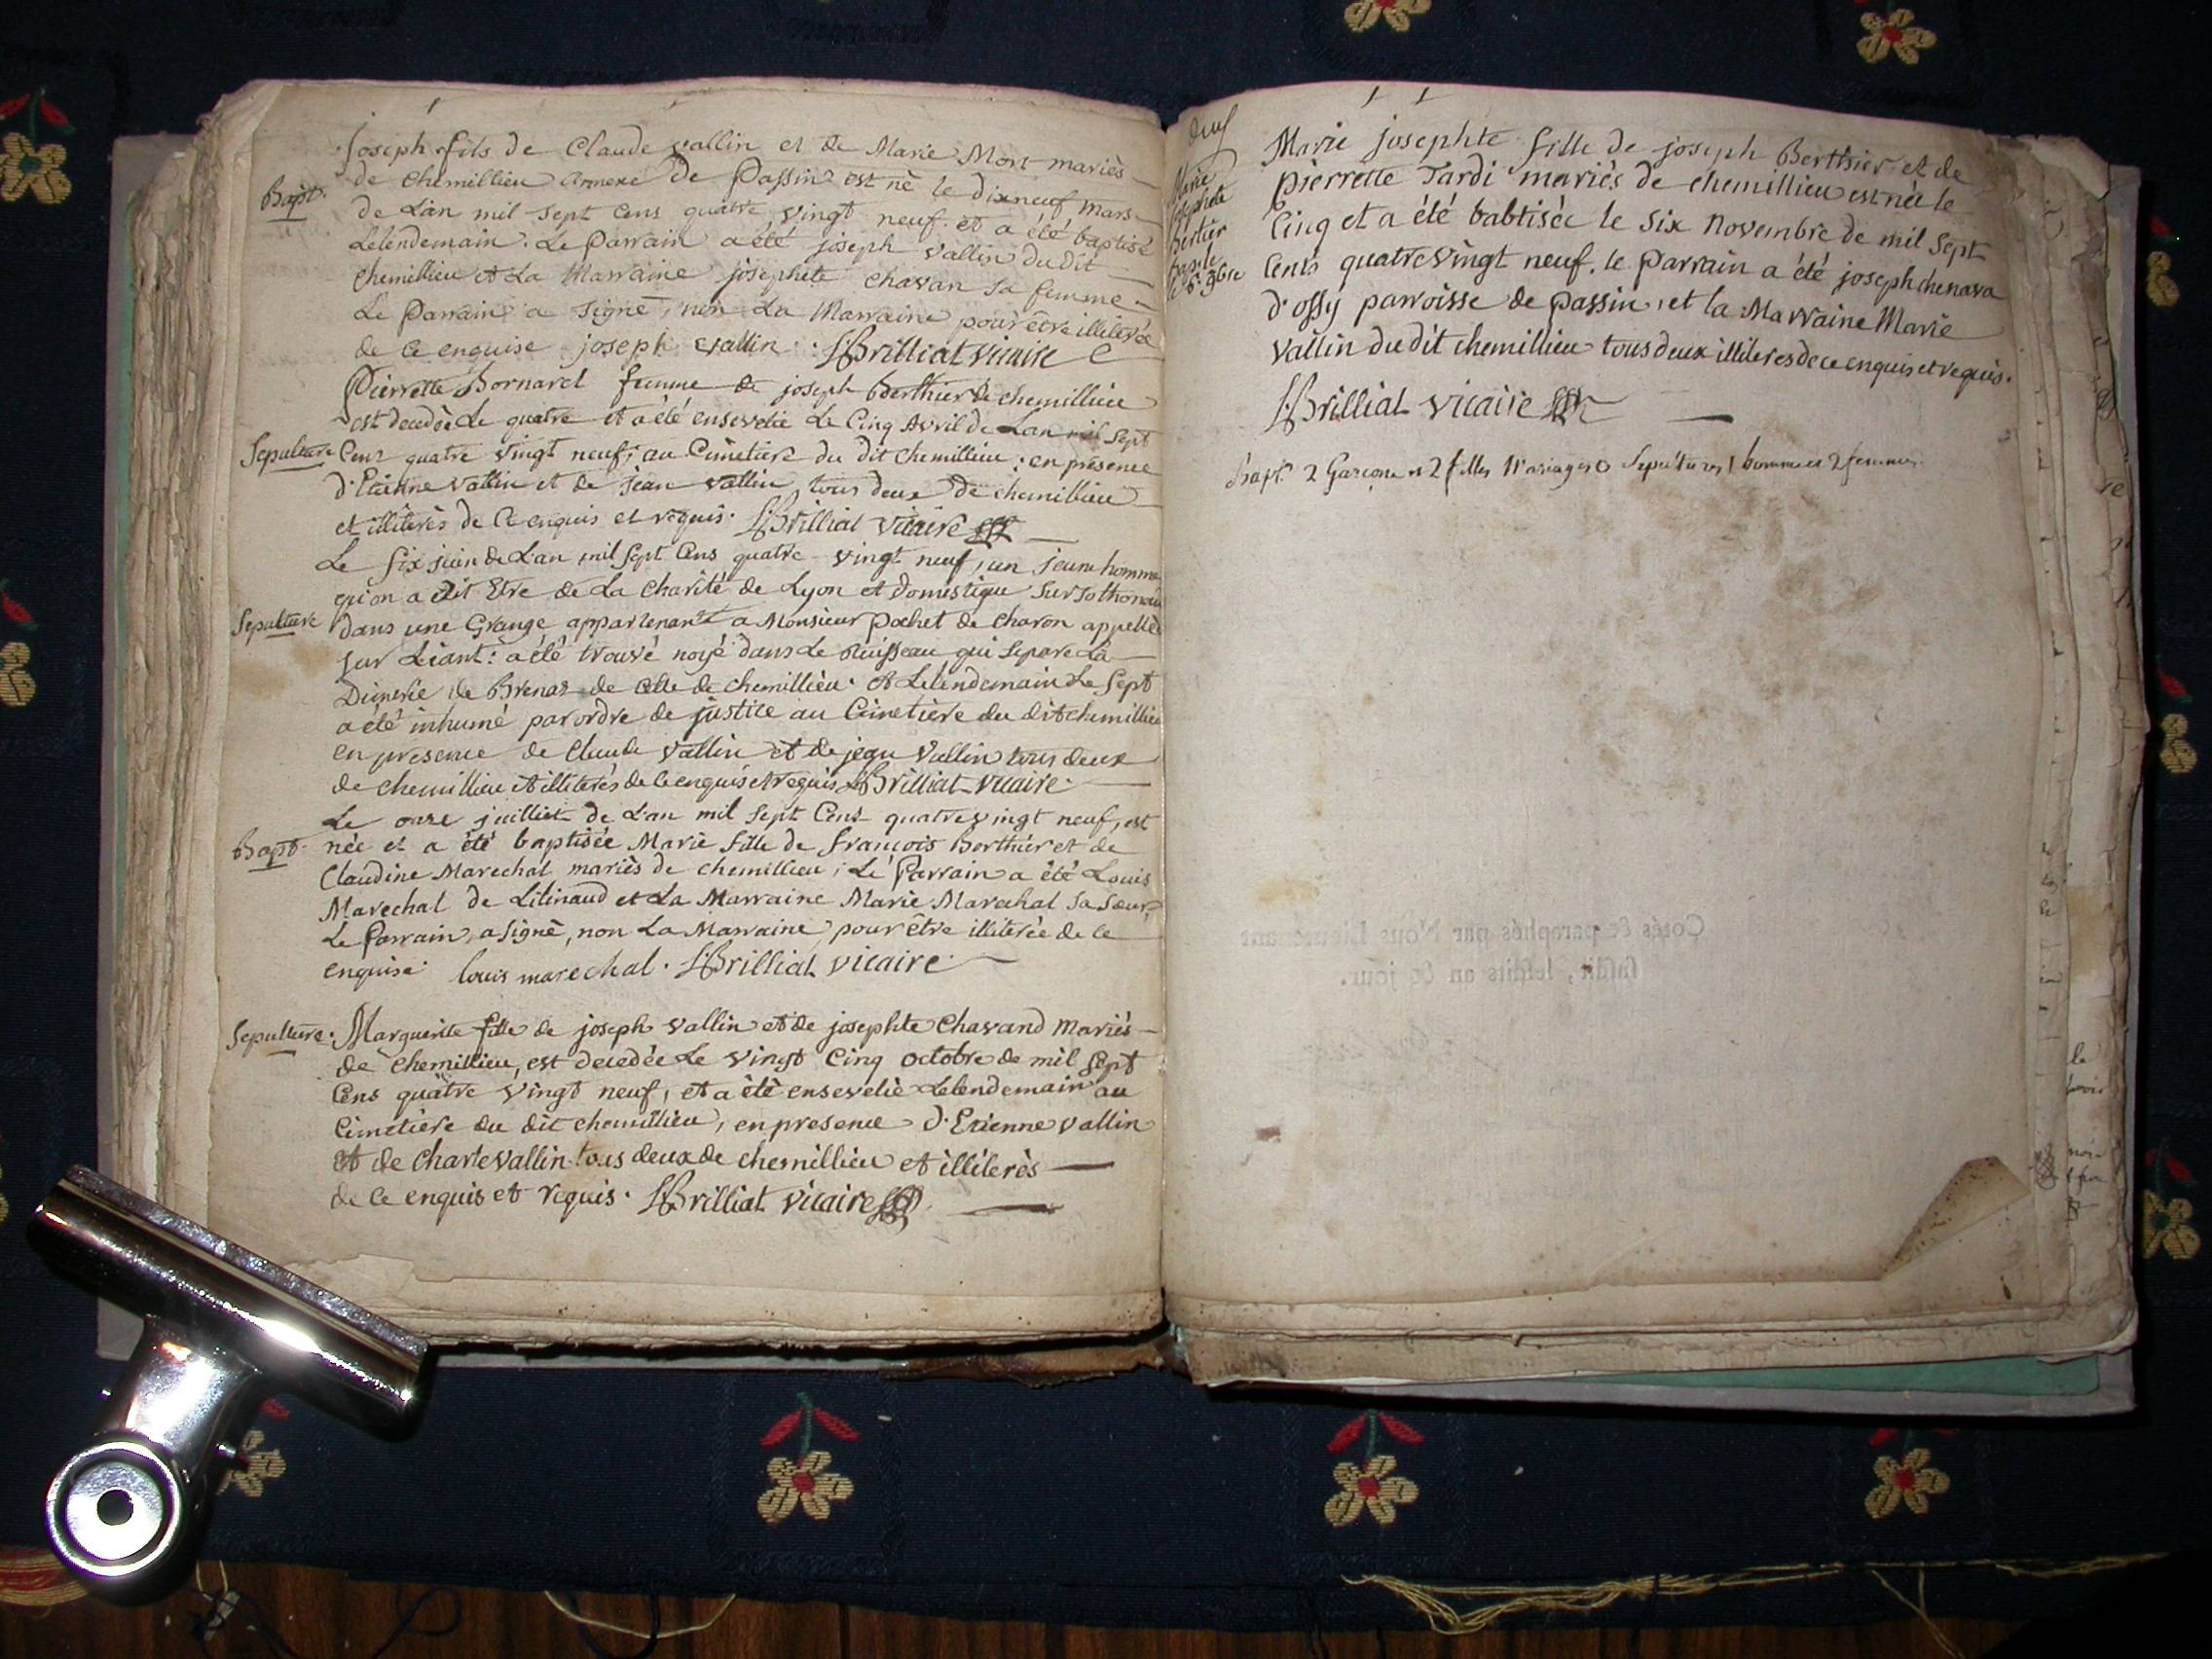 Joseph fils de Claude vallin et de Marie Mort mariès
Bapt. de chemillieu annexe de Passin est né le dixneuf mars
de L'an mil sept Cens quatre vingt neuf et a été baptisé
Lelendemain. Le Parrain a été joseph vallin du dit
chemillieu et La Marraine josephete chavan sa femme
Le Parrain a signé, non La Marraine pour être illiterée
de ce enquise joseph vallin. Brilliat vicaire
Pierrette Bornarel femme de joseph Berthier de chemillieu
est decedée Le quatre et a été ensevelie Le Cinq Avril de Lan mil Sept
Sepulture Cens quatre vingt neuf, au Cimetiere du dit chemillieu; en présence
d'Etienne vallin et de jean vallin tous deux de chemillieu
et illiterès de Ce enquis et requis. Brilliat vicaire
Le six juin de L'an mil sept Cens quatre vingt neuf, un jeune homme
qu'on a dit Etre de La Charité de Lyon et domestique sur sothonou
Sepulture dans une Grange appartenant a Monsieur pochet de charon appellée
sur Léant: a été trouvé noyé dans Le Ruisseau qui separe La
Dimerie de Brenaz de celle de chemillieu. et Lelendemain Le Sept
a été inhumé par ordre de justice au Cimetière du dit chemillieu
en presence de Claude Vallin et de jean Vallin tous deux
de chemillieu et illiterés de ce enquis et requis Brilliat vicaire.
Le onze juilliet de L'an mil sept Cens quatre vingt neuf, est
Bapt. née et a été baptisée Marie fille de françois Berthier et de
Claudine Marechal mariès de chemillieu; Le Parrain a été Louis
Marechal de Lilinaud et La Marraine Marie Marechal sa Sœur,
Le Parrain, a signè, non La Marraine, pour être illiterée de ce
enquise. louis marechal. Brilliat vicaire.
Sepulture. Marguerite fille de joseph vallin et de josephte Chavand Mariès
de Chemillieu, est decedée Le vingt Cinq octobre de mil sept
Cens quatre vingt neuf, et a été ensevelie Lelendemain au
Cimetière du dit chemillieu, en presence d'Etienne vallin
et de Charle vallin tous deux de chemillieu et illiterès
de ce enquis et requis. Brilliat vicaire
neuf
Marie
josephete
Bertier
bap. le
6e. 9bre
Marie josephte fille de joseph Berthier et de
pierrette Tardi mariès de chemillieu est née le
Cinq et a été babtisée le six Novembre de mil sept
Cents quatre vingt neuf. le parrain a été joseph chenava
d'ossy parroisse de passin, et la Marraine Marie
vallin du dit chemillieu tous deux illiteres de ce enquis et requis.
Brilliat vicaire
Bapt. 2 Garçons et 2 filles Mariages 0 Sepultures 1 homme et 2 femmes
Cotés & paraphés par Nous Lieutenant
susdit, lesdits an & jour.